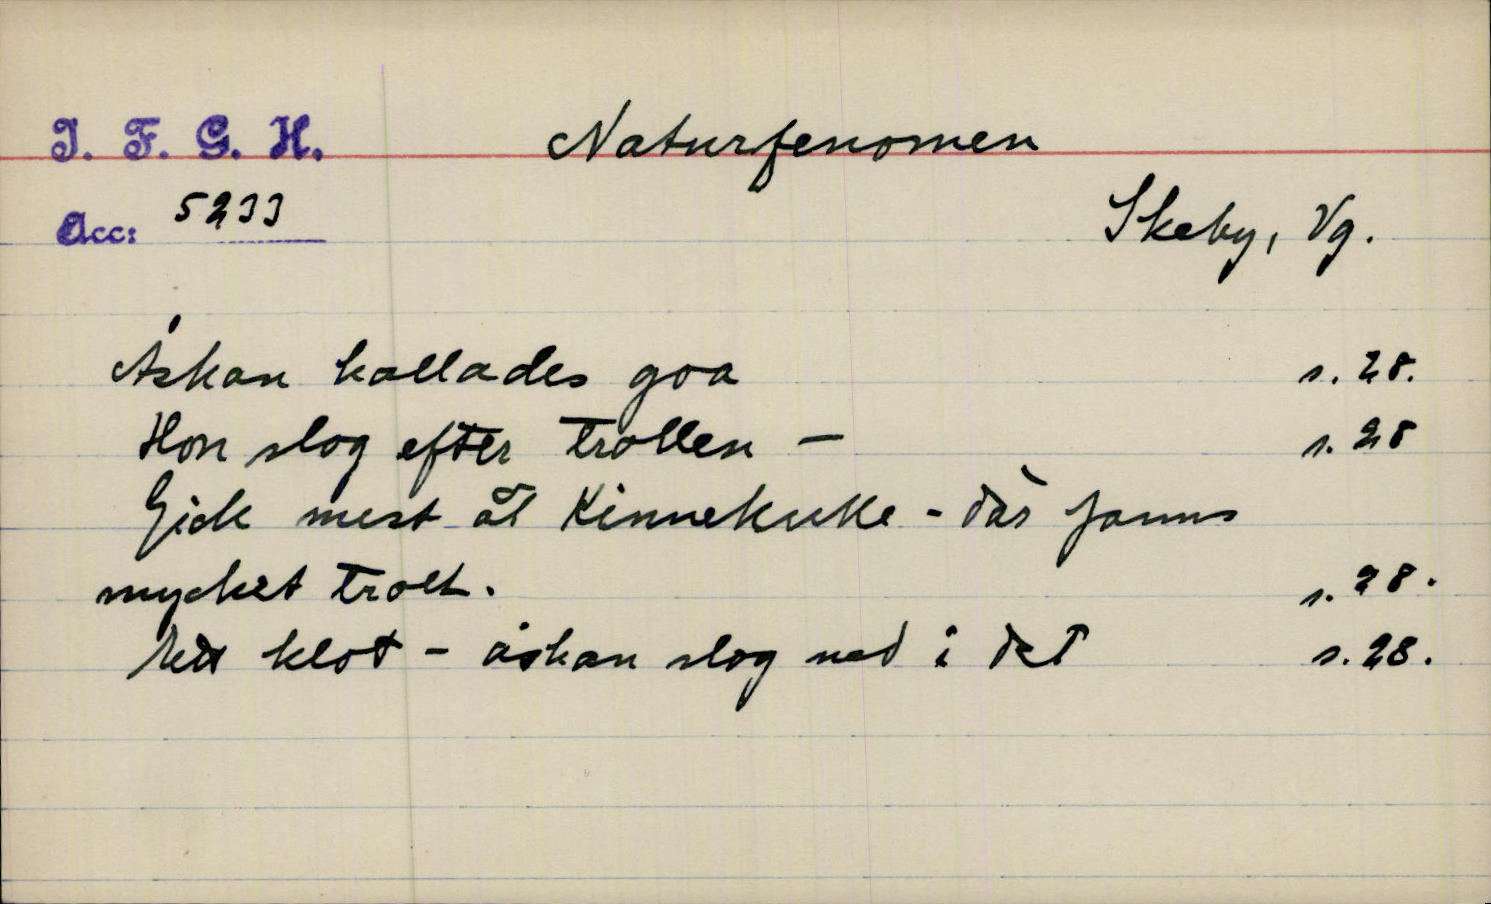 I. F. G. H.
Naturfenomen
Acc: 5233
Skeby, Vg.
Åskan kallades goa s. 28.
Hon slog efter trollen – s. 28
Gick mest åt Kinnekulle - där fanns
mycket troll. s. 28.
klot – åskan slog ned i det s. 28.